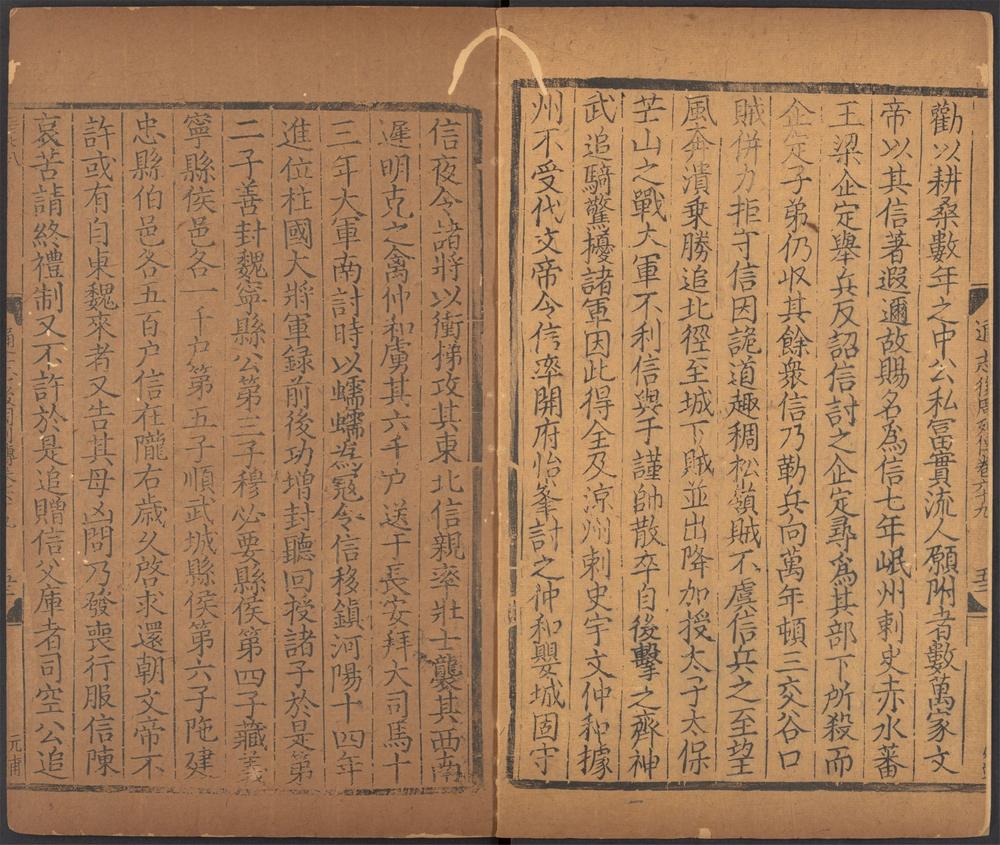 勸以耕桑數年之中公私富實流人願附者數萬家文
帝以其信著遐邇故賜名為信七年岷州刺史赤水蕃
王梁企定舉兵反詔信討之企定尋為其部下所殺而
企定子弟仍収其餘衆信乃勒兵向萬年頓三交谷口
賊併力拒守信因詭道趣稠松嶺賊不虞信兵之至望
風奔潰乗勝追北徑至城下賊並出降加授太子太保
芒山之戰大軍不利信與于謹帥散卒自後擊之齊神
武追騎驚擾諸軍因此得全及涼州刺史宇文仲和據
州不受代文帝令信率開府怡峯討之仲和嬰城固守
通志後周列傳卷六九
五二
信夜令諸將以衝梯攻其東北信親率壯士襲其西南
遲明克之禽仲和虜其六千户送于長安拜大司馬十
三年大軍南討時以蠕蠕為寇令信移鎮河陽十四年
進位柱國大將軍録前後功增封聽回授諸子於是第
二子善封魏寧縣公第三子穆必要縣侯第四子藏義
寧縣侯邑各一千户第五子順武城縣侯第六子陁建
忠縣伯邑各五百户信在隴右歳久啓求還朝文帝不
許或有自東魏來者又告其母凶問乃發喪行服信陳
哀苦請終禮制又不許於是追贈信父庫者司空公追